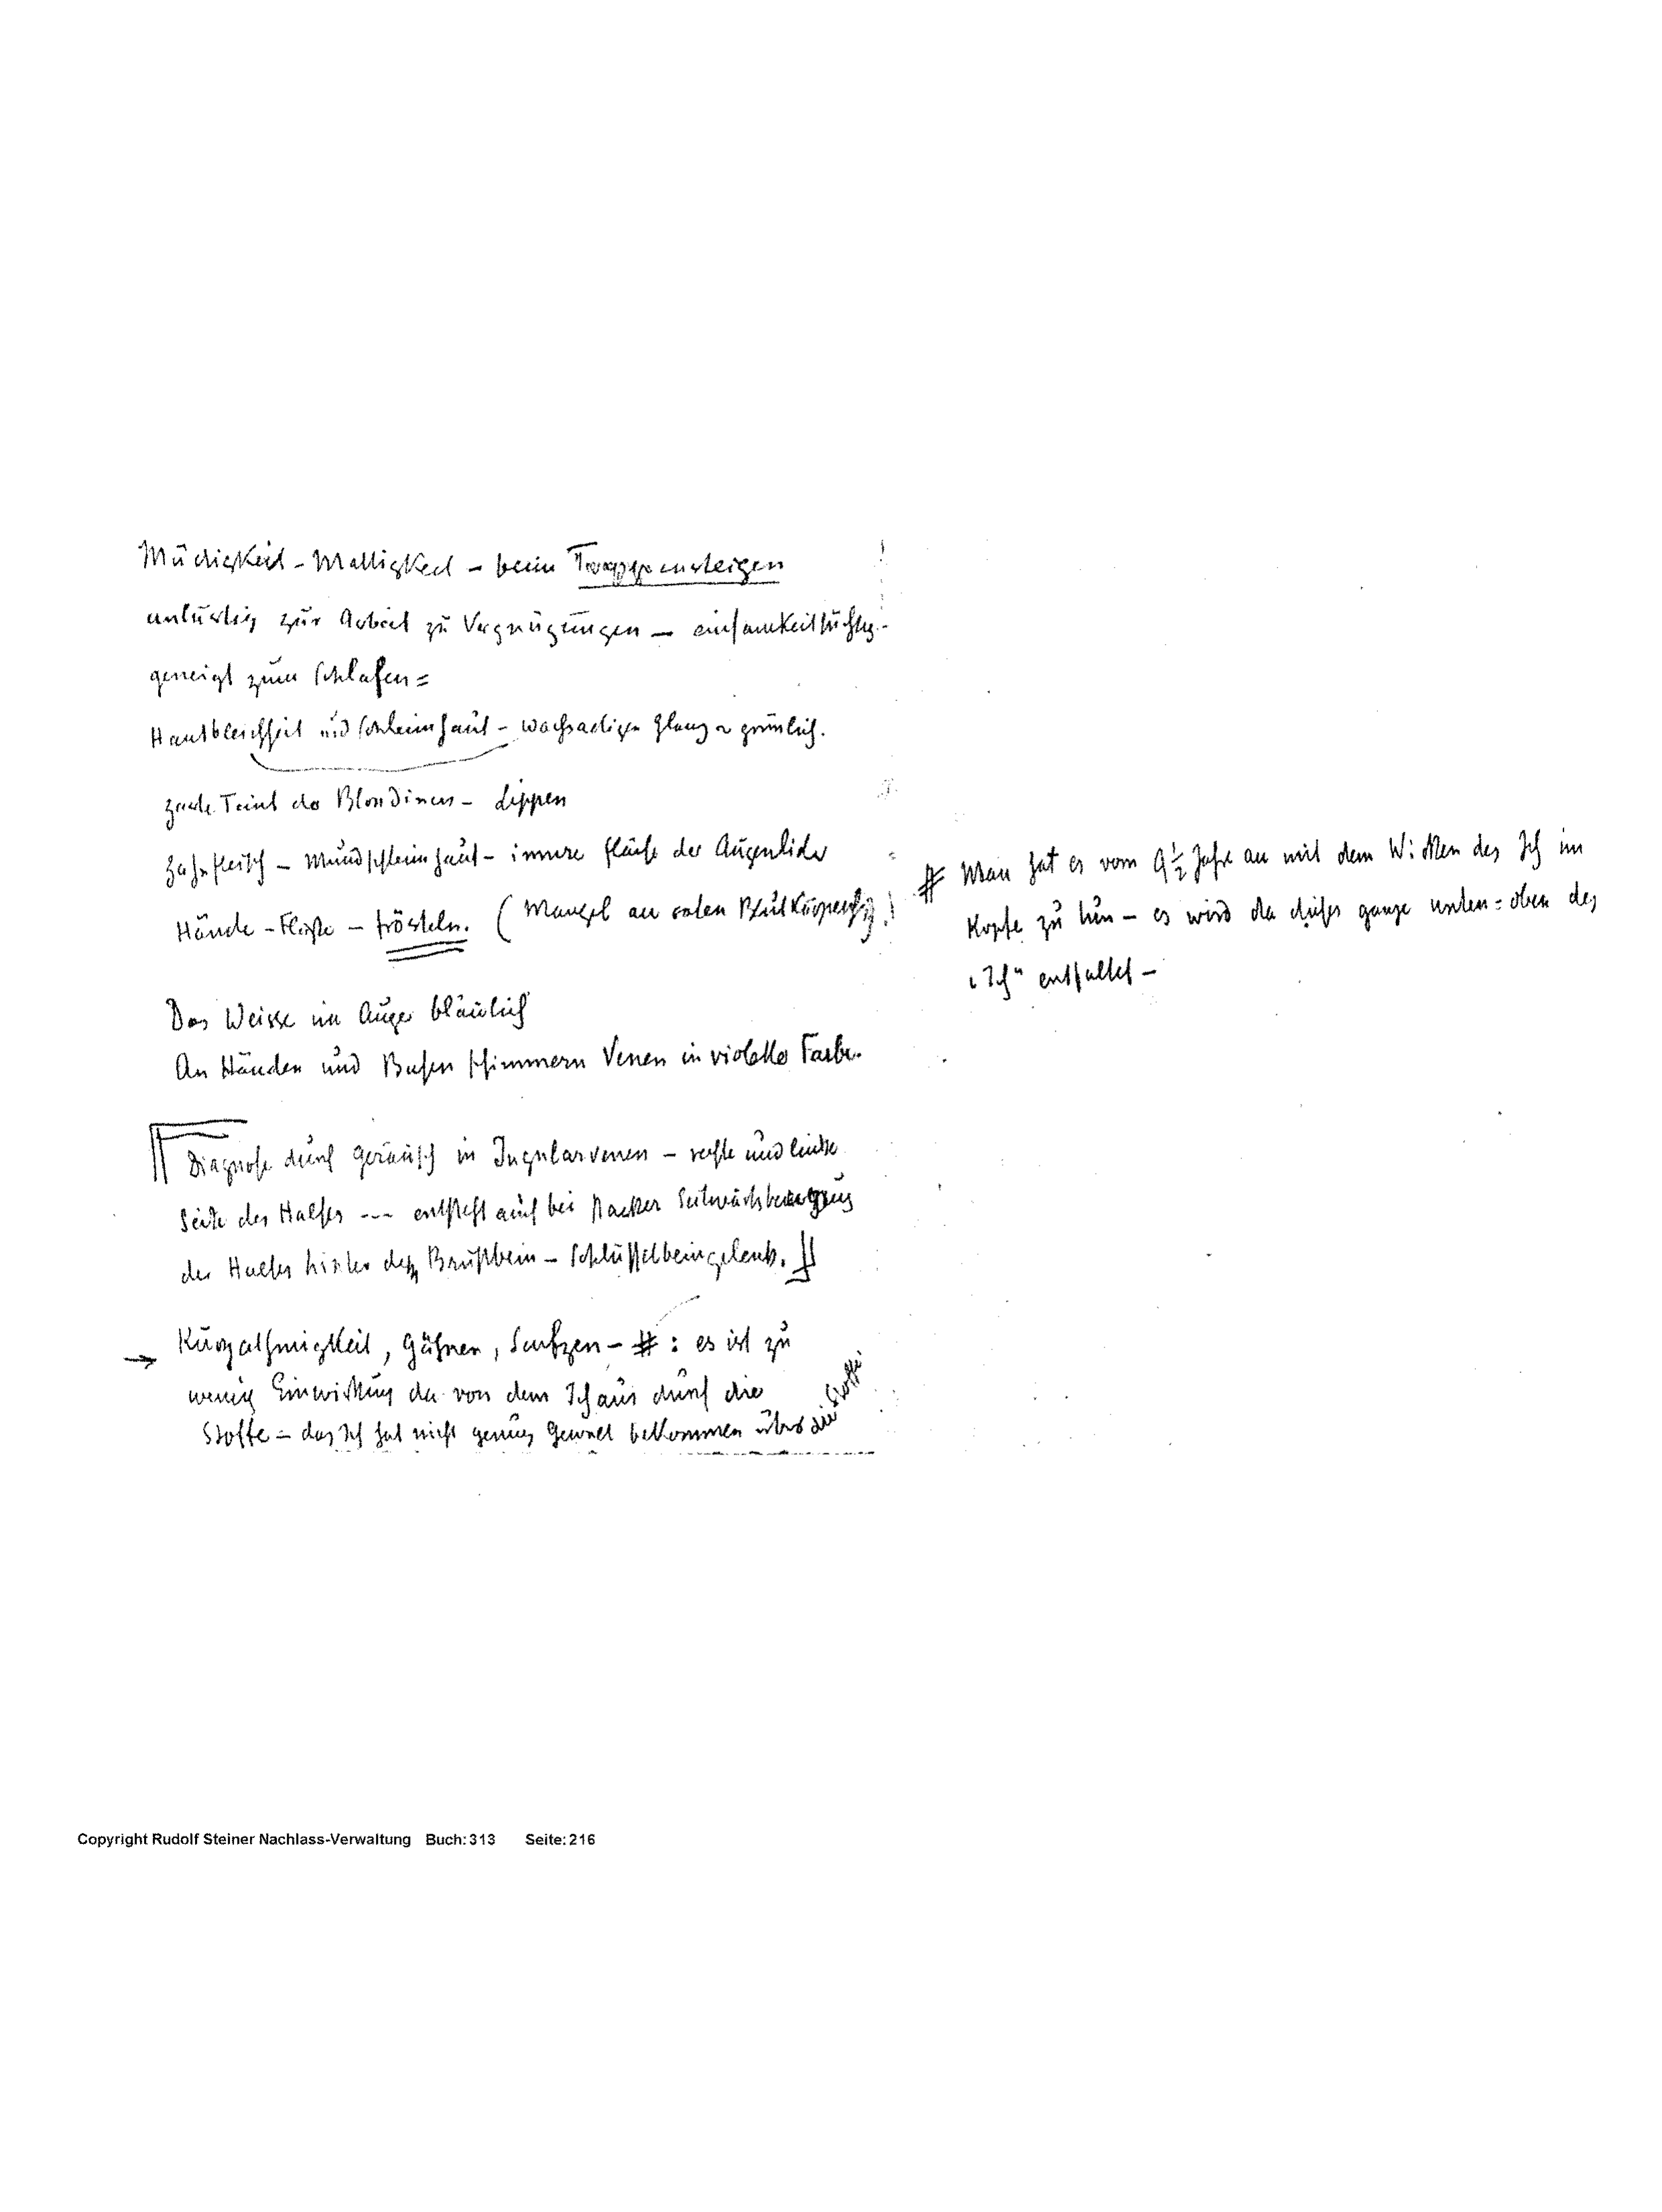 Müdigkeit – Mattigkeit – beim Treppensteigen
unlustig zur Arbeit zu Vergnügungen – einsamkeitsüchtig –
geneigt zum Schlafen =
Hautbleichheit und Schleimhaut – wachsartigen Glanz grünlich.
zarte Teint der Blondinen – Lippen
Zahnfleisch – Mundschleimhaut – innere Fläche der Augenlider
Hände – Füße – frösteln. (Mangel an roten Blutkörperch)!
Das Weisse im Auge bläulich
An Händen und Busen schimmern Venen in violetter Farbe.
Diagnose durch Geräusch in Jugularvenen – rechte und linke
Seite des Halses --- entsteht auch bei starker Seitwärtsbewegung
des Halses hinter dem Brustbein – Schlüsselbeingelenk.
→ Kurzathmigkeit, Gähnen, Seufzen – #: es ist zu
wenig Einwirkung da von dem Ich aus durch die
Stoffe = das Ich hat nicht genug Gewalt bekommen über die Stoffe
# Man hat es vom 9½ Jahre an mit dem Wirken des Ich im
Kopfe zu tun – es wird da dieses ganze unten = oben des
„Ich“ entfaltet –
Copyright Rudolf Steiner Nachlass-Verwaltung Buch: 313 Seite: 216